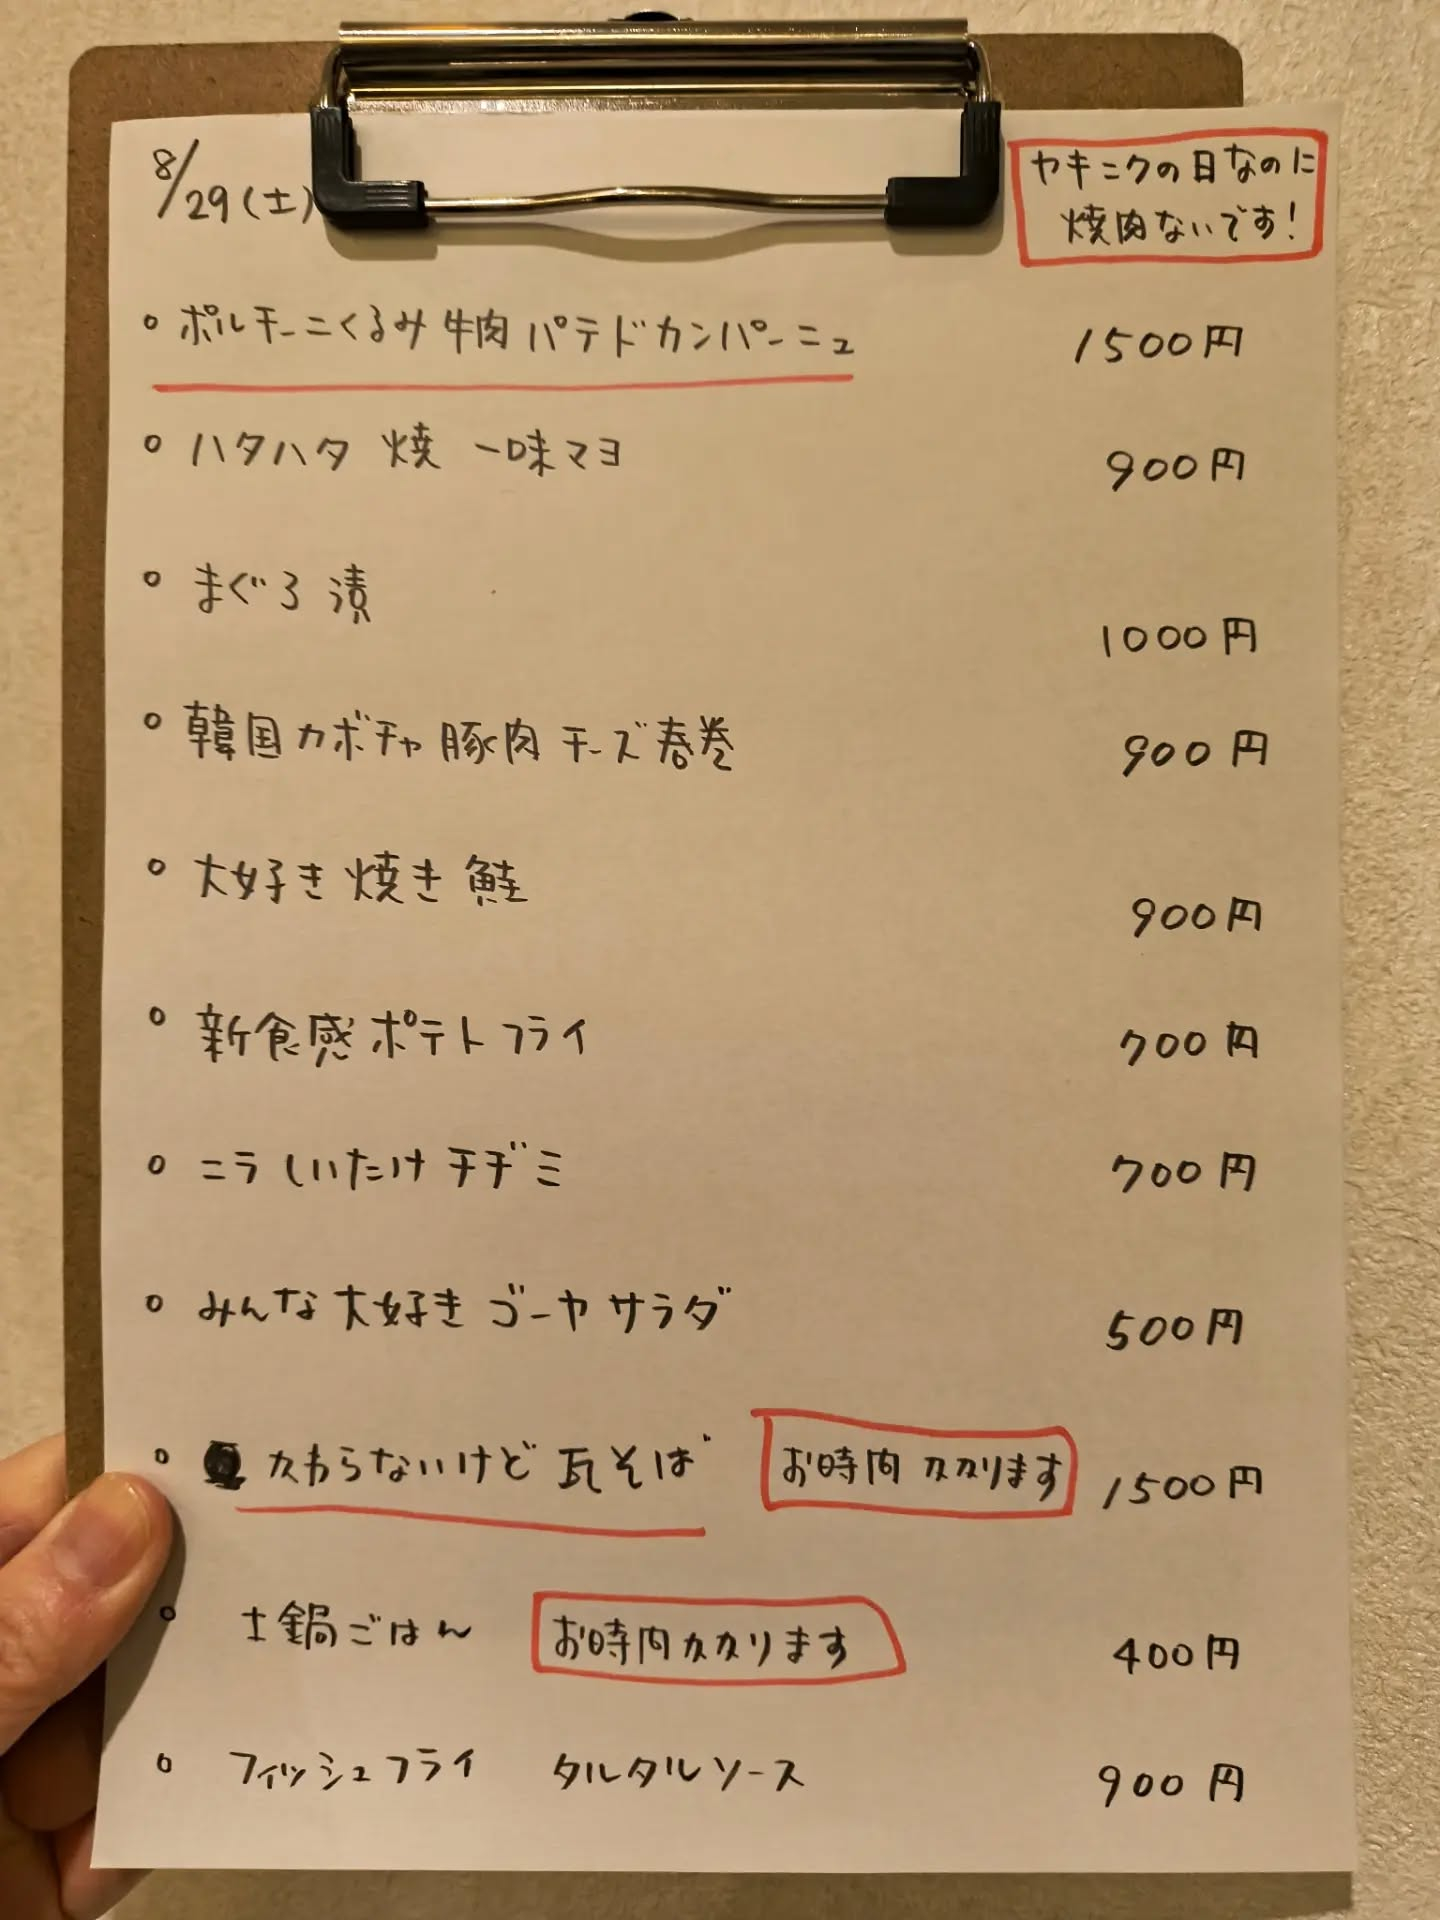 8/29(土)
ヤキニクの日なのに
焼肉ないです!
○ ポルチーニくるみ牛肉パテドカンパーニュ 1500円
○ ハタハタ 焼 一味マヨ 900円
○ まぐろ漬 1000円
○ 韓国カボチャ豚肉チーズ春巻 900円
○ 大好き焼き鮭 900円
○ 新食感ポテトフライ 700円
○ ニラしいたけチヂミ 700円
○ みんな大好きゴーヤサラダ 500円
○ カわらないけど瓦そば お時間カカリます 1500円
○ 土鍋ごはん お時間カカリます 400円
○ フィッシュフライ タルタルソース 900円